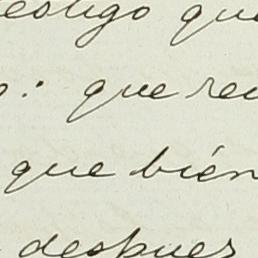 testigo que
o: que rec
que bién
despues